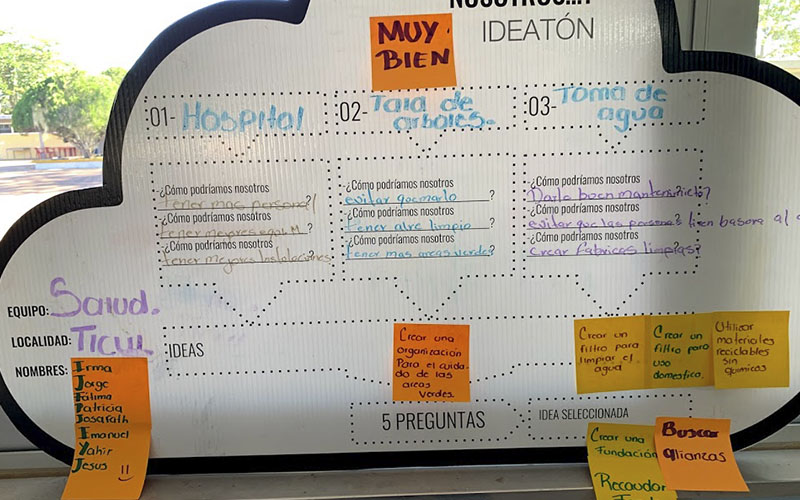 NOSOTROS...?
IDEATÓN
MUY
BIEN
01- Hospital
02- Tala de
arboles.
03- Toma de
agua
¿Cómo podríamos nosotros
tener mas personal?
¿Cómo podríamos nosotros
tener mejores ?
¿Cómo podríamos nosotros
tener mejores Instalaciones
¿Cómo podríamos nosotros
evitar quemarlo ?
¿Cómo podríamos nosotros
tener aire limpio ?
¿Cómo podríamos nosotros
tener mas areas verdes?
¿Cómo podríamos nosotros
Darle buen mantenimiento?
¿Cómo podríamos nosotros
evitar que las personas? tiren basura al
¿Cómo podríamos nosotros
crear fabricas limpias?
EQUIPO: Salud.
LOCALIDAD: TICUL
NOMBRES:
Irma
Jorge
Fátima
Patricia
Josarath
Emanuel
Yahir
Jesus
IDEAS
Crear una
organización
Para el cuida-
do de las
areas
verdes.
Crear un
filtro para
limpiar el
agua
Crear un
filtro para
uso
domestico.
Utilizar
materiales
reciclables
sin
quimicos
5 PREGUNTAS
IDEA SELECCIONADA
Crear una
Fundación
Recaudar
Buscar
alianzas